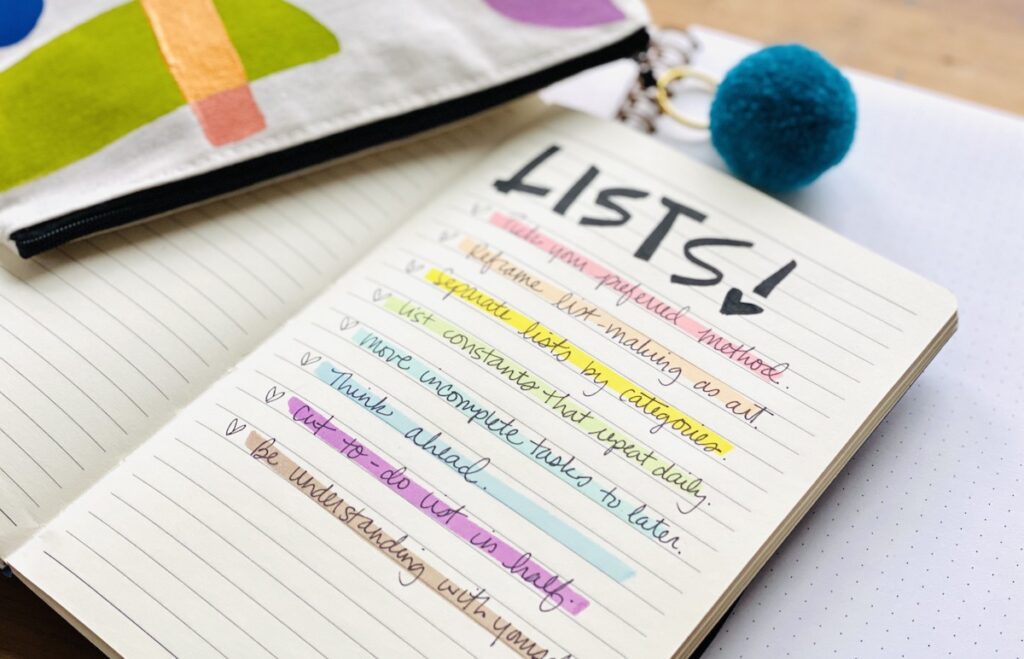 LISTS!
Pick you preferred method.
Reframe list-making as art.
Separate lists by categories.
List constants that repeat daily.
Move incomplete tasks to later.
Think ahead.
Cut to-do list in half.
Be understanding with